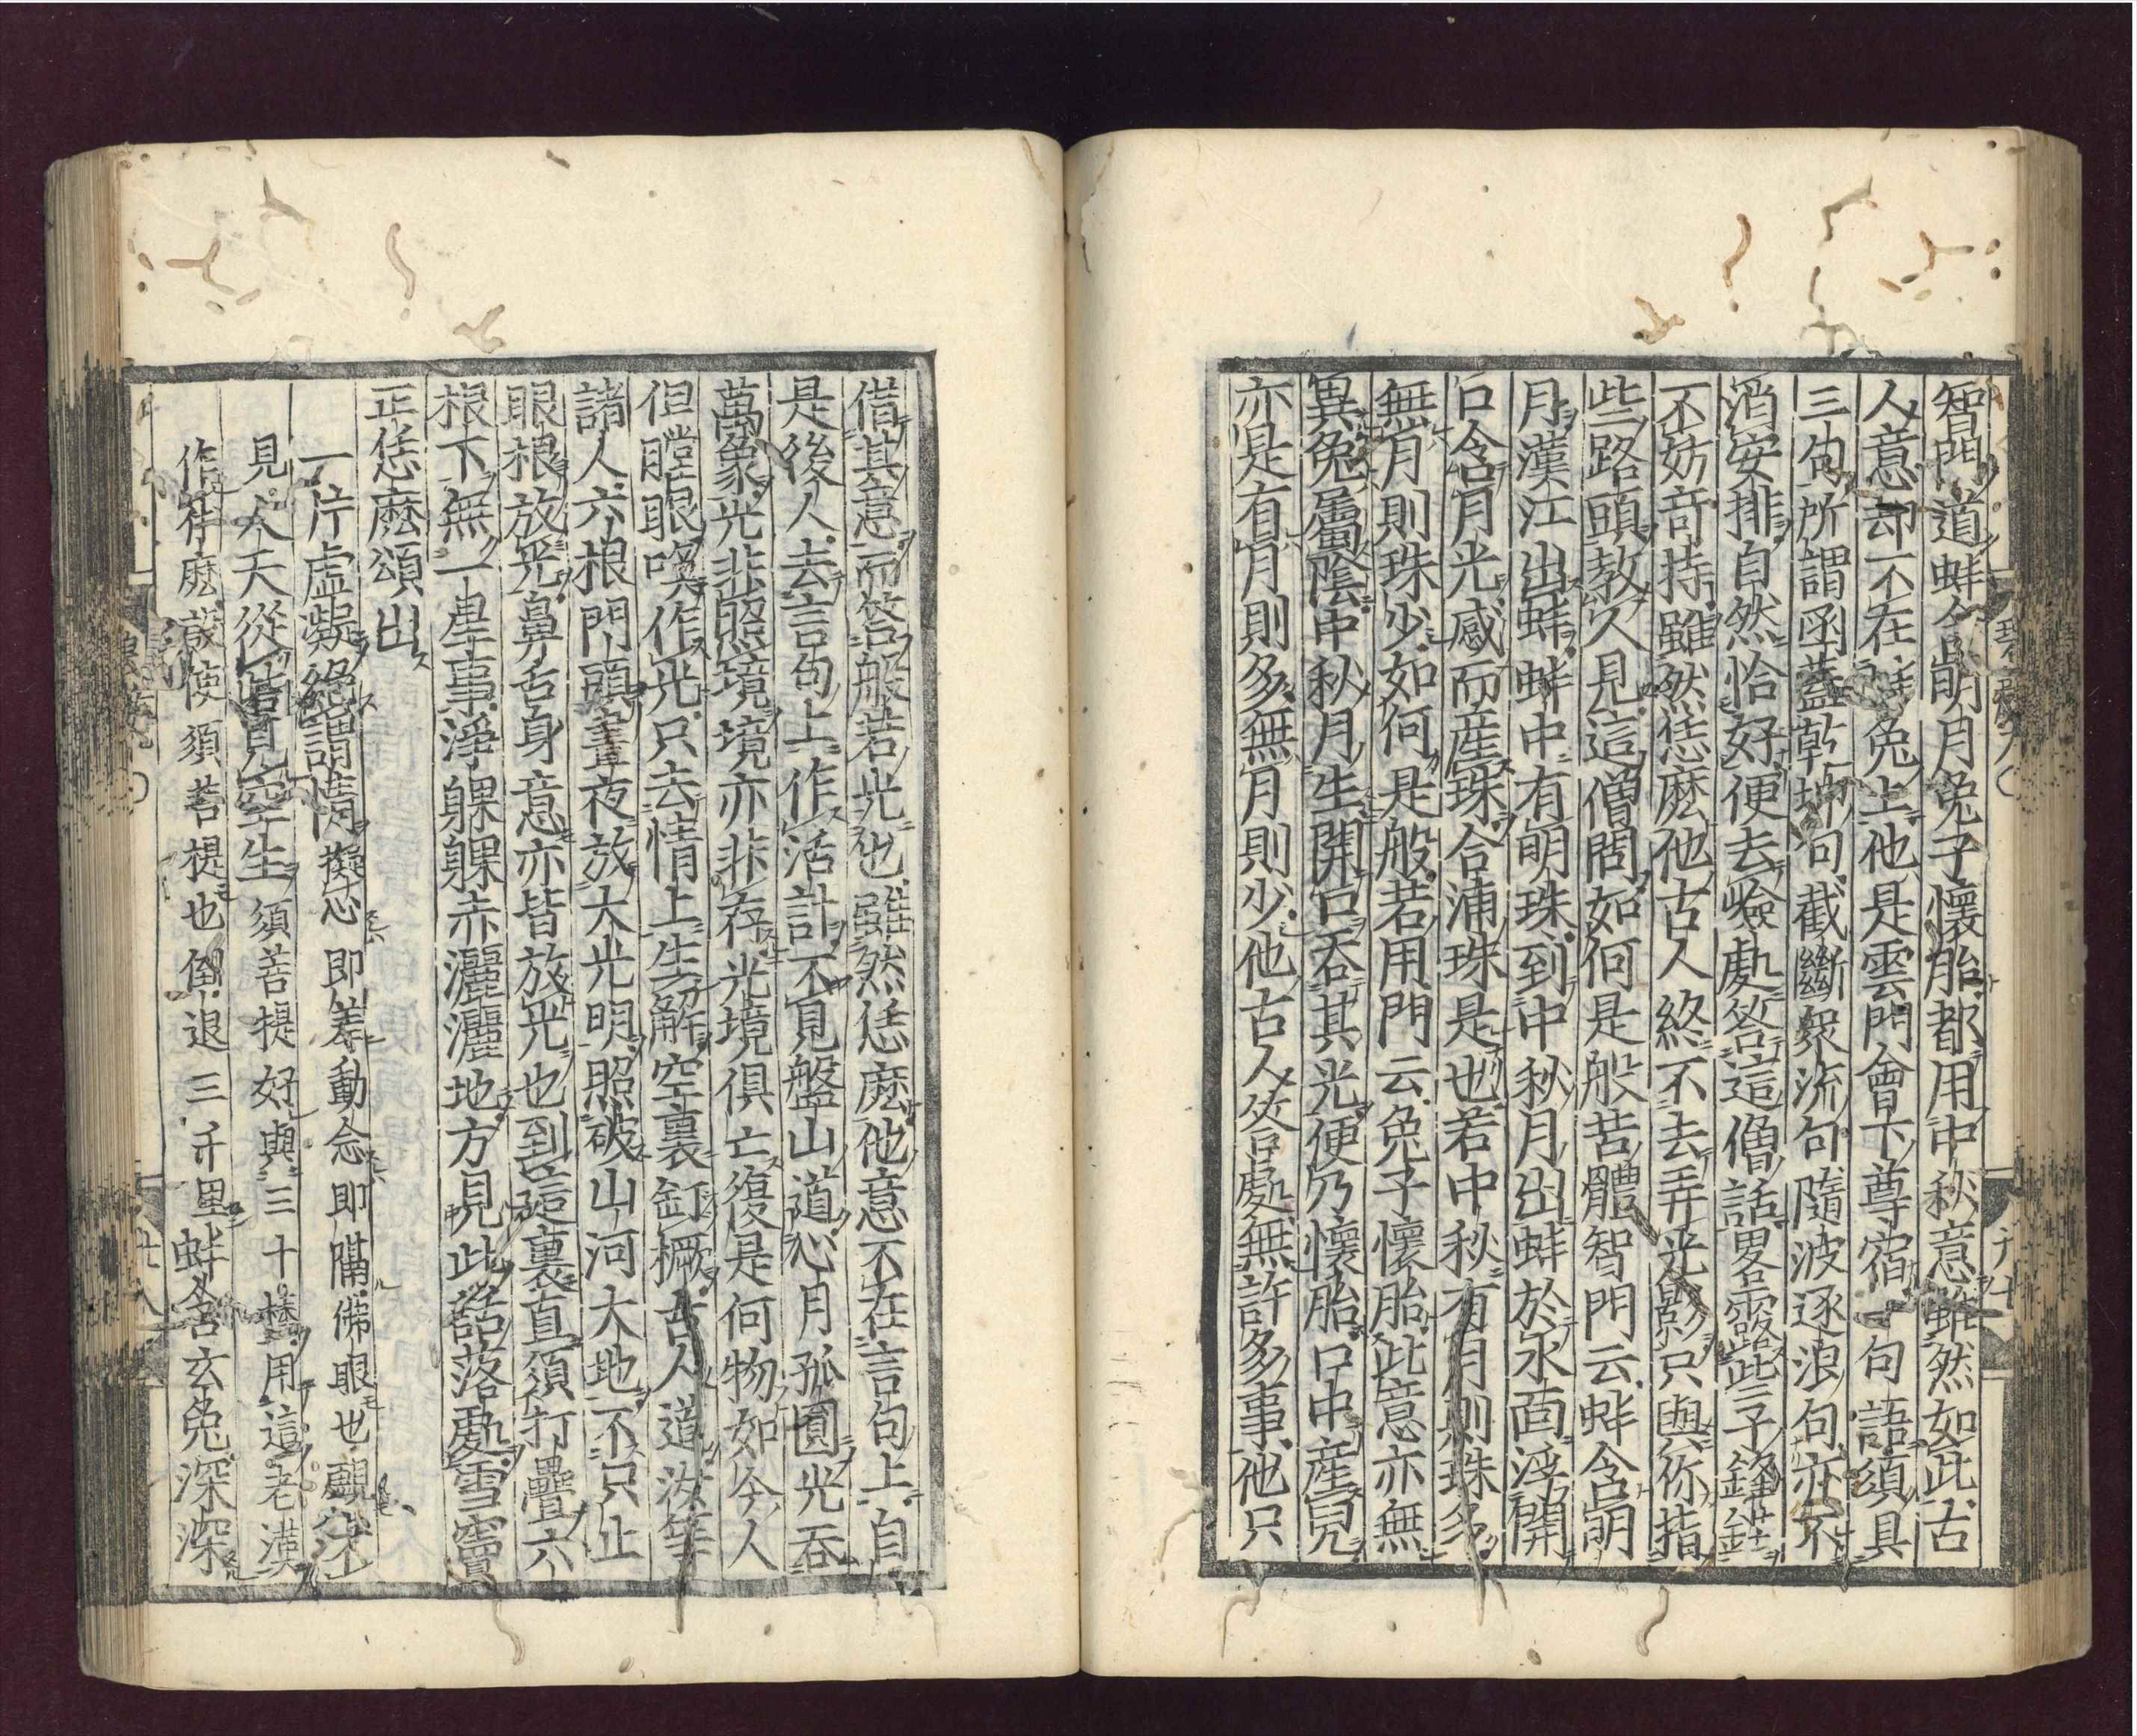 智門道蚌含明月兔子懷胎都用中秋意雖然如此古
人意却不在蚌兔上他是雲門會下尊宿一句語須具
三句所謂函蓋乾坤句截斷衆流句隨波逐浪句亦不
消安排自然恰好便去嶮處答這僧話畧露些子鋒鋩
不妨奇特雖然恁麽他古人終不去弄光影只與你指
些路頭教人見這僧問如何是般若體智門云蚌含明
月漢江出蚌蚌中有明珠到中秋月出蚌於水面浮開
口含月光感而産珠合浦珠是也若中秋有月則珠多
無月則珠少如何是般若用門云兔子懷胎此意亦無
異兔屬陰中秋月生開口吞其光便乃懷胎口中産兒
亦是有月則多無月則少他古人答處無許多事他只
借其意而答般若光也雖然恁麽他意不在言句上自
是後人去言句上作活計不見盤山道心月孤圓光吞
萬象光非照境境亦非存光境俱亡復是何物如今人
但瞠眼喚作光只去情上生解空裏釘橛古人道汝等
諸人六根門頭晝夜放大光明照破山河大地不只止
眼根放光鼻舌身意亦皆放光也到這裏直須打疊六
根下無一星事淨躶躶赤灑灑地方見此話落處雪竇
正恁麽頌出
一片虛凝絕謂情擬心即差動念即隔佛眼也覷不
見人天從此見空生須菩提好與三十棒用這老漢
作什麽設使須菩提也倒退三千里蚌含玄兔深深